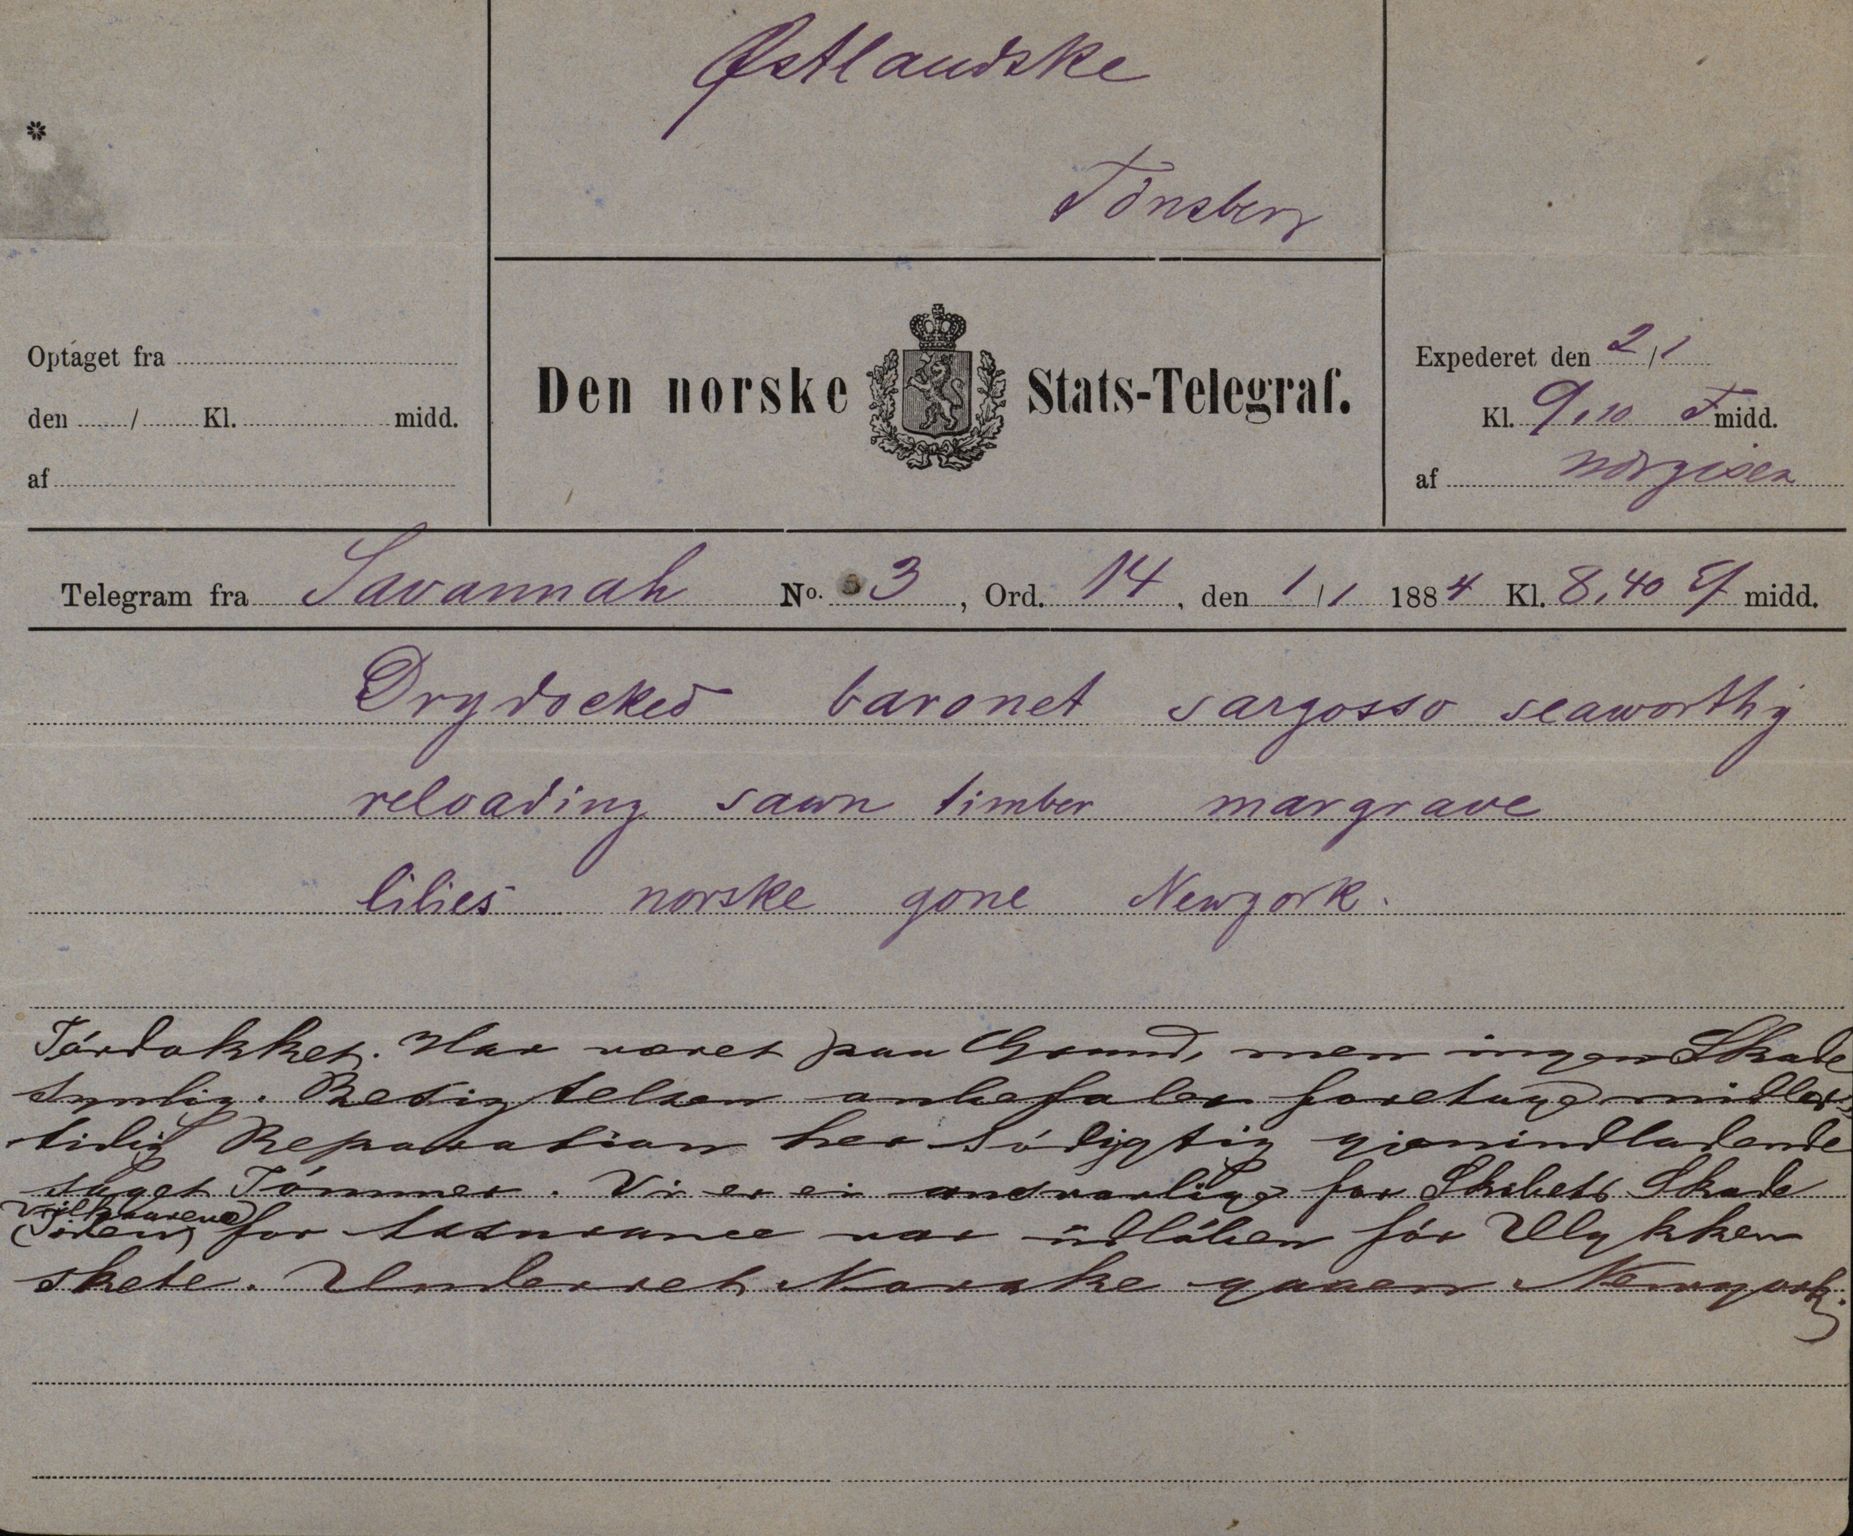 Østlandske
Tönsberg
*
Optaget fra
den / Kl. midd.
af
Den norske Stats-Telegraf.
Expederet den 2/1
Kl. 9,10 F midd.
af
Telegram fra Savannah No. 3, Ord. 14, den 1/1 1884 Kl. 8,40 Ef midd.
Drydocked baronet sargosso seaworthy
reloading sawn timber margrave
lilies norske gone Newyork.
Tördokket. Har været paa Grund, men ingen Skade
synlig. Besigtelsen anbefaler foretage midler
tidig Reparation her Södygtig gjenindladende
saget Tömmer. Vi er ei ansvarlige for Skibets Skade
Vilkaarene
(Tiden) for Assurance var üdlöben för Ulykken
skete. Underret Norske gaaen Newyork.